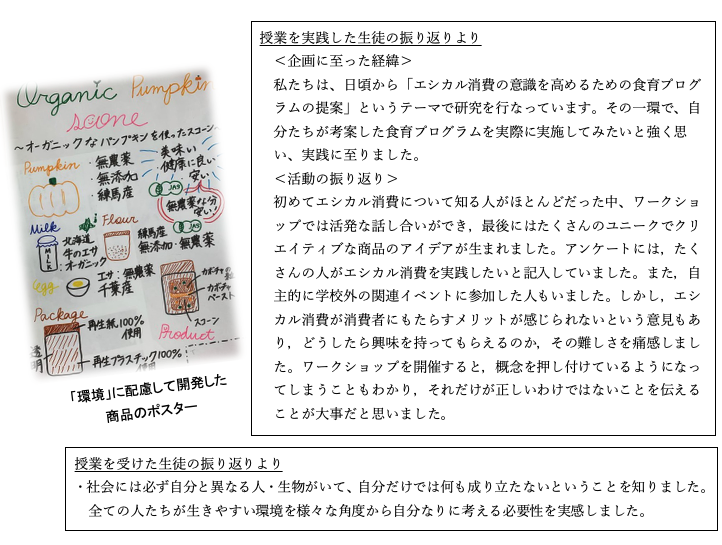 Organic Pumpkin
scone
～オーガニックなパンプキンを使ったスコーン
Pumpkin
・無農薬
・無添加
練馬産
・美味い
・健康に良い
・安い
JAS
無農薬な分
安い!
Milk
MILK
北海道
牛のエサ
:オーガニック
Flour
練馬産
無添加・無農薬
JAS
egg
エサ:無農薬
千葉産
カボチャ
カボチャ
ペースト
スコーン
Package
再生紙100%
使用
Product
透明
再生プラスチック100%
使用
「環境」に配慮して開発した
商品のポスター
授業を実践した生徒の振り返りより
＜企画に至った経緯＞
私たちは、日頃から「エシカル消費の意識を高めるための食育プログ
ラムの提案」というテーマで研究を行なっています。その一環で、自
分たちが考案した食育プログラムを実際に実施してみたいと強く思
い、実践に至りました。
＜活動の振り返り＞
初めてエシカル消費について知る人がほとんどだった中、ワークショ
ップでは活発な話し合いができ，最後にはたくさんのユニークでクリ
エイティブな商品のアイデアが生まれました。アンケートには，たく
さんの人がエシカル消費を実践したいと記入していました。また，自
主的に学校外の関連イベントに参加した人もいました。しかし，エシ
カル消費が消費者にもたらすメリットが感じられないという意見もあ
り，どうしたら興味を持ってもらえるのか，その難しさを痛感しまし
た。ワークショップを開催すると，概念を押し付けているようになっ
てしまうこともわかり，それだけが正しいわけではないことを伝える
ことが大事だと思いました。
授業を受けた生徒の振り返りより
・社会には必ず自分と異なる人・生物がいて、自分だけでは何も成り立たないということを知りました。
全ての人たちが生きやすい環境を様々な角度から自分なりに考える必要性を実感しました。